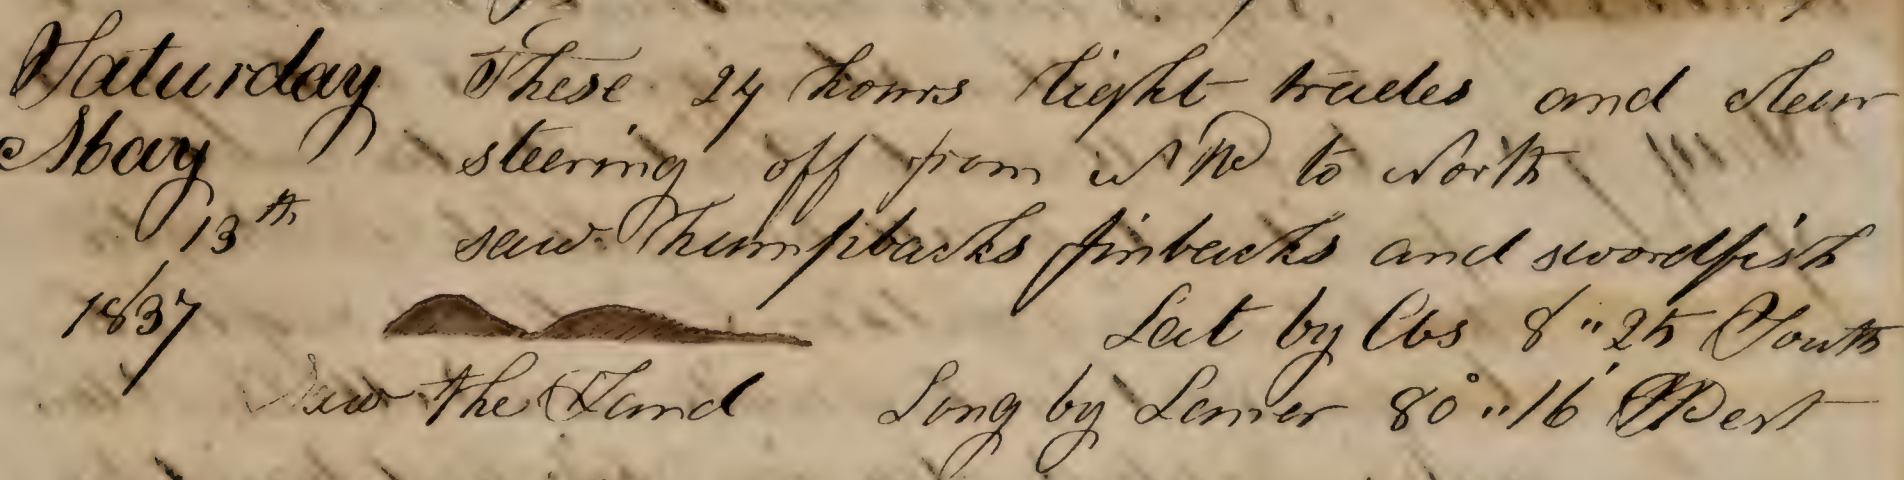 Saturday These 24 hours light trades and clear
May steering off from NW to North
13th saw humpbacks finbacks and swordfish
1837 Lat by Obs 8"25 South
Saw the Land Long by Lunar 80°"16' West